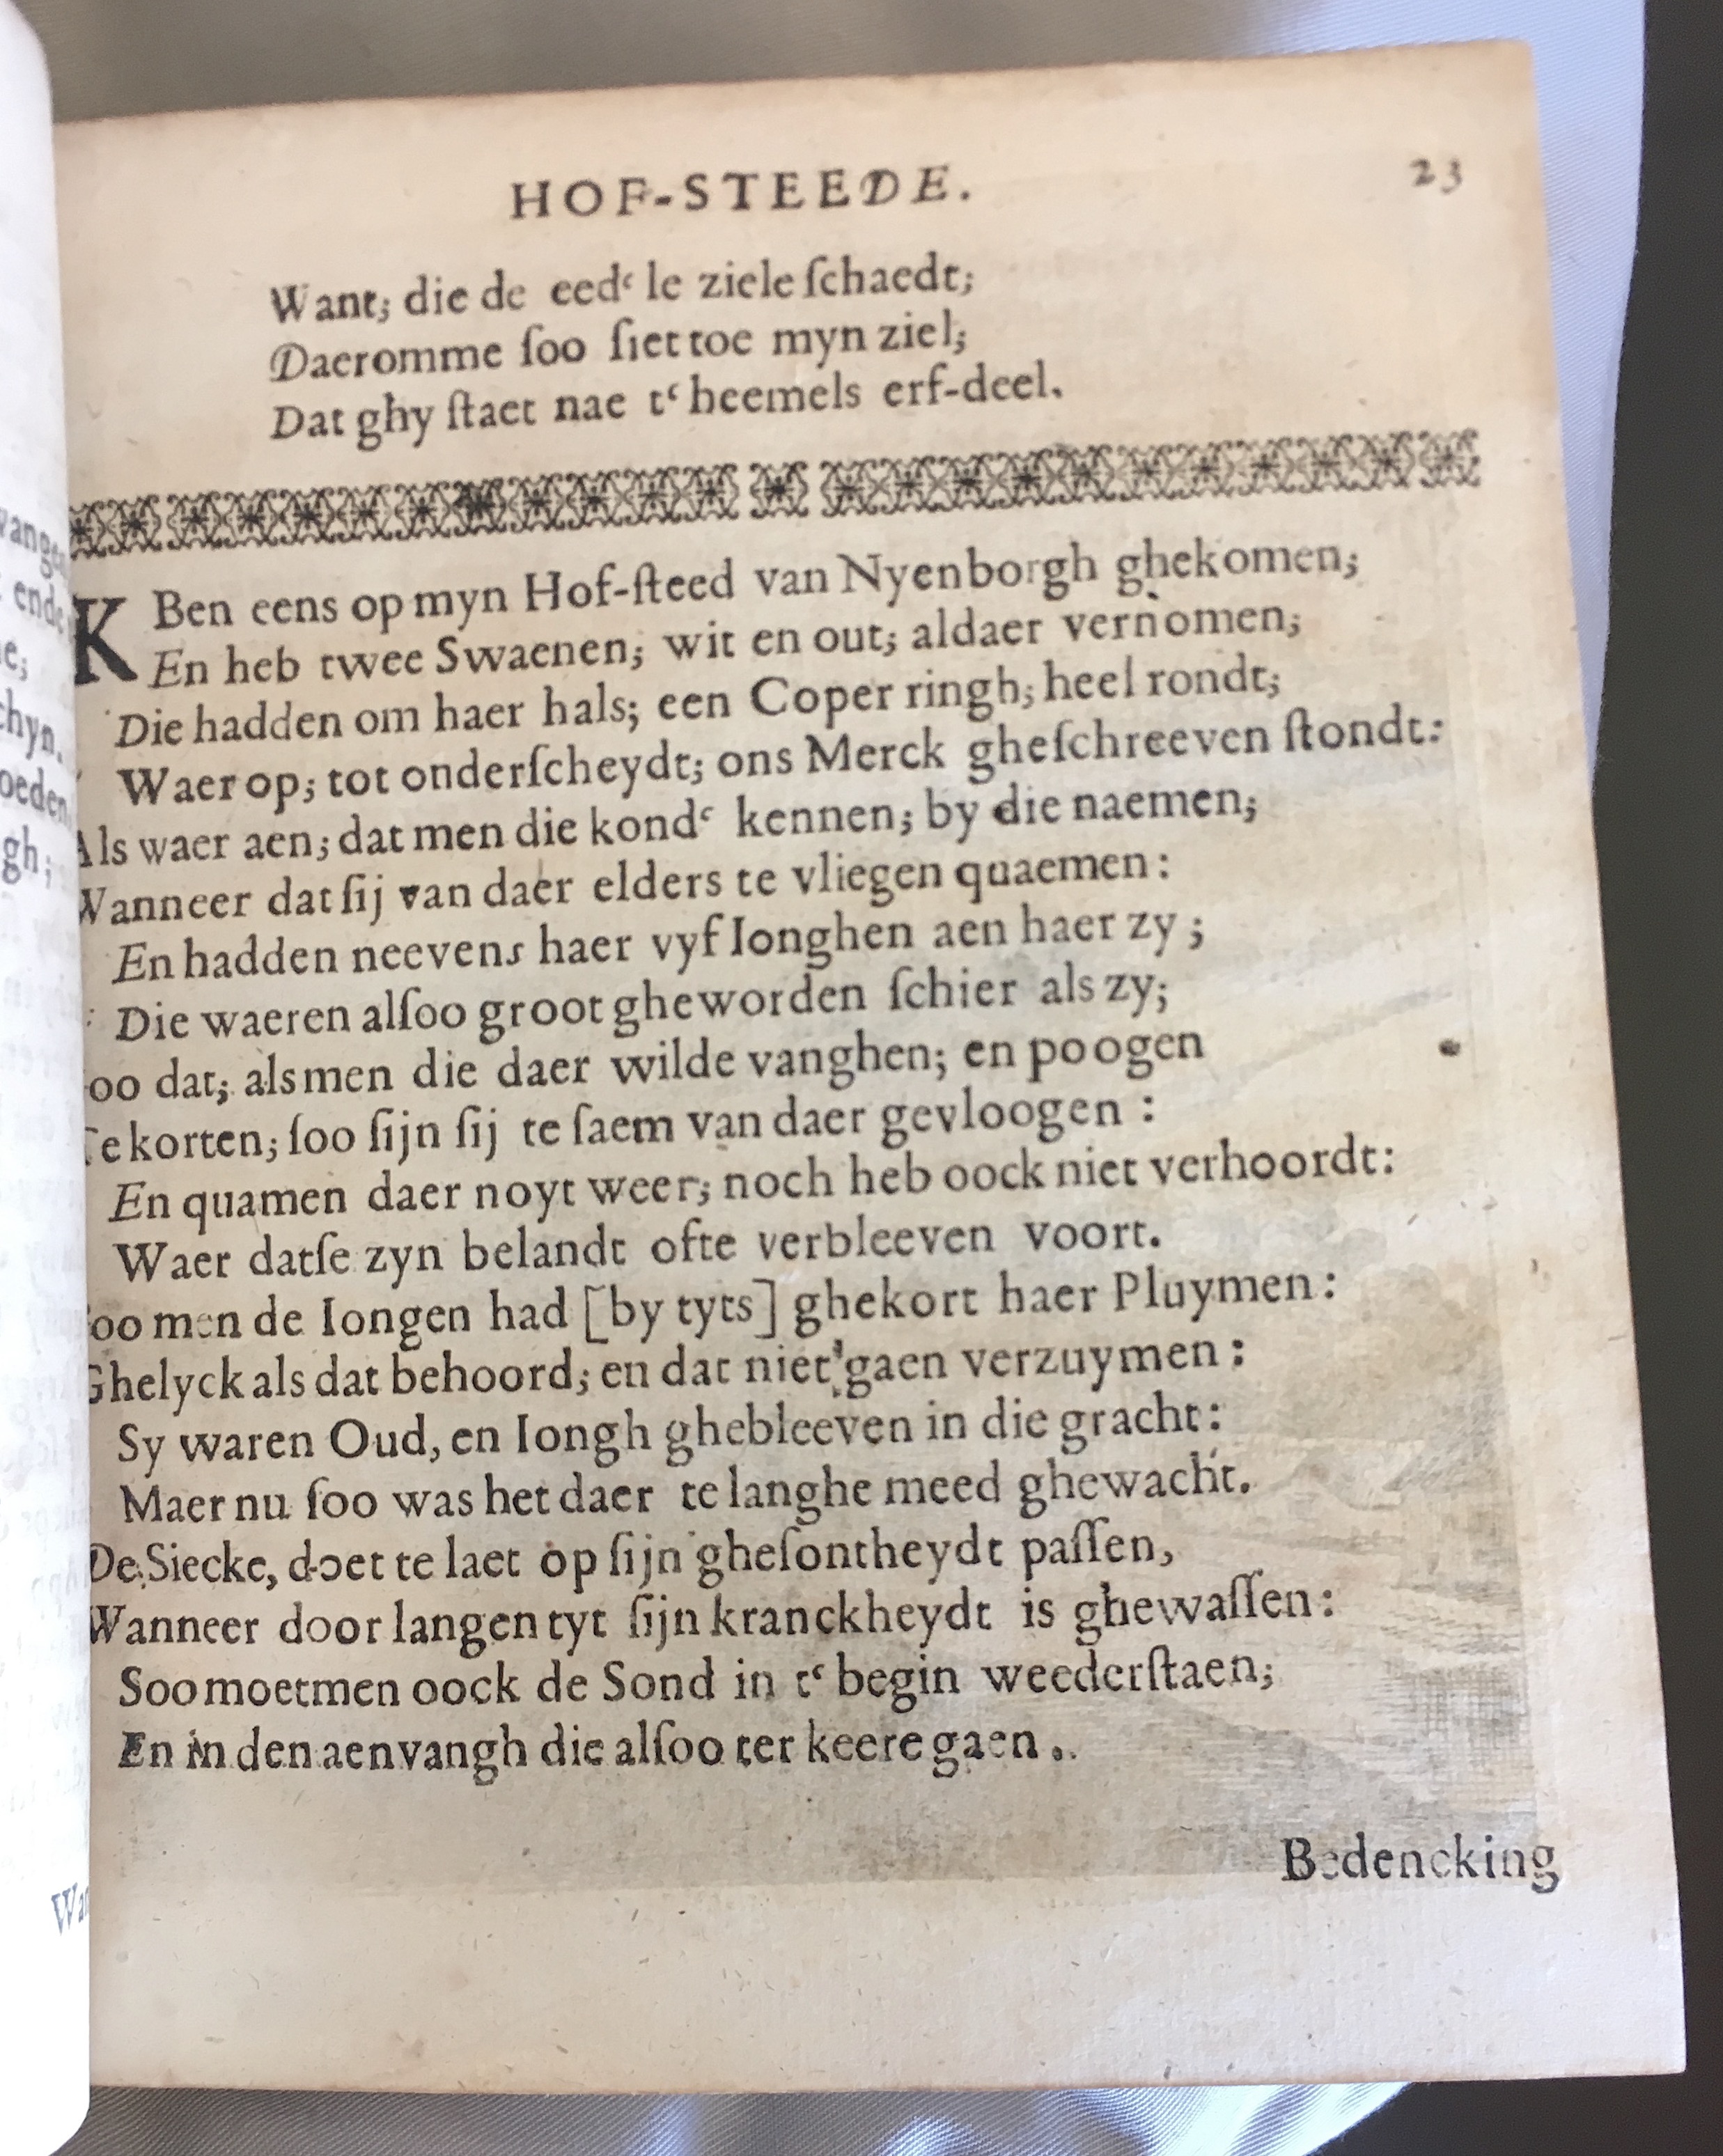 HOF-STEEDE. 23
Want; die de eedʿ le ziele ſchaedt;
Daeromme ſoo ſiet toe myn ziel;
Dat ghy ſtaet nae tʿ heemels erf-deel.
K Ben eens op myn Hof-ſteed van Nyenborgh ghekomen;
En heb twee Swaenen; wit en out; aldaer vernomen;
Die hadden om haer hals; een Coper ringh; heel rondt;
Waer op; tot onderſcheydt; ons Merck gheſchreeven ſtondt:
Als waer aen; dat men die kondʿ kennen; by die naemen;
Wanneer dat ſij van daer elders te vliegen quaemen:
En hadden neevens haer vyf Ionghen aen haer zy;
Die waeren alſoo groot gheworden ſchier als zy;
oo dat; alsmen die daer wilde vanghen; en poogen
Te korten; ſoo ſijn ſij te ſaem van daer gevloogen:
En quamen daer noyt weer; noch heb oock niet verhoordt:
Waer datſe zyn belandt ofte verbleeven voort.
oo men de Iongen had [by tyts] ghekort haer Pluymen:
Ghelyck als dat behoord; en dat niet gaen verzuymen:
Sy waren Oud, en Iongh ghebleeven in die gracht:
Maer nu ſoo was het daer te langhe meed ghewacht.
De Siecke, doet te laet op ſijn gheſontheydt paſſen,
Wanneer door langen tyt ſijn kranckheydt is ghewaſſen:
Soo moetmen oock de Sond in tʿ begin weederſtaen;
En in den aenvangh die alſoo ter keere gaen..
Bedencking